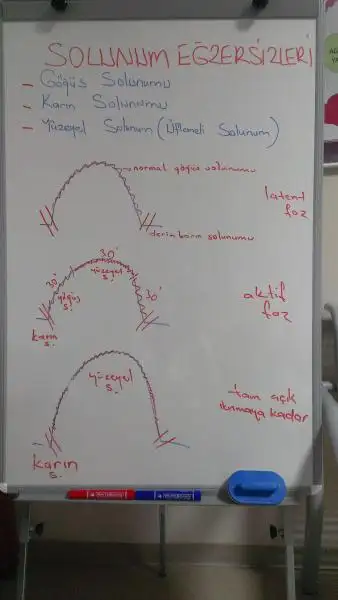 SOLUNUM EGZERSİZLERİ
- Göğüs Solunumu
- Karın Solunumu
- Yüzeyel Solunum (Üflemeli Solunum)
normal göğüs solunumu
latent
faz
derin karın solunumu
30'
yüzeyel
s.
30'
göğüs
s.
30'
aktif
faz
karın
s.
yüzeyel
s.
tam açık
ıkınmaya kadar
karın
s.